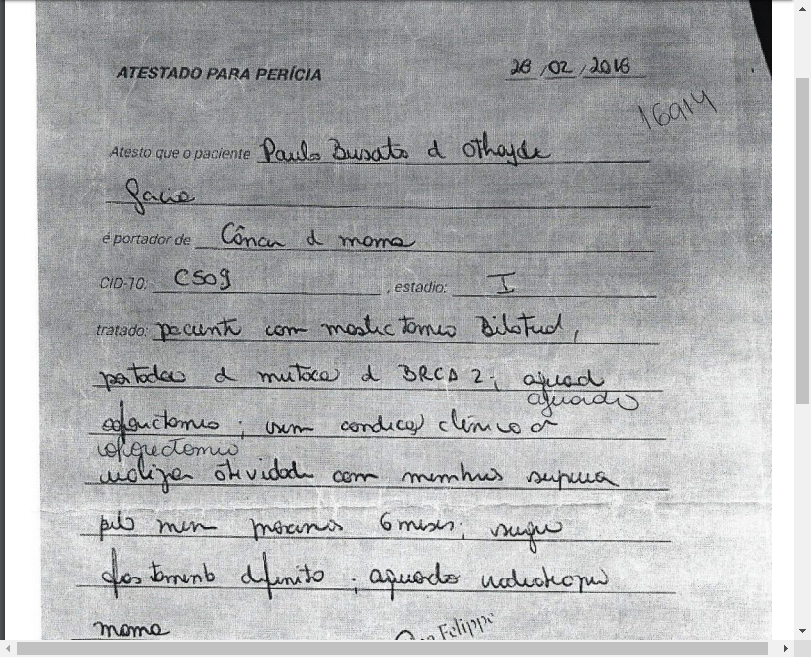 ATESTADO PARA PERÍCIA
28/02/2018
16914
Atesto que o paciente Paulo Busato d
é portador de Câncer d mama
CID-10: C509, estadio: I
tratado: paciente com mastectomia Bilateral,
portador d mutaca d BRCA 2; aguard
aguardo
sem condicao clínica d
realizar atividade com membros superior
pelo menos proximos 6 meses; sugiro
afastamento definito; aguardo radioterapia
mama
Felippe